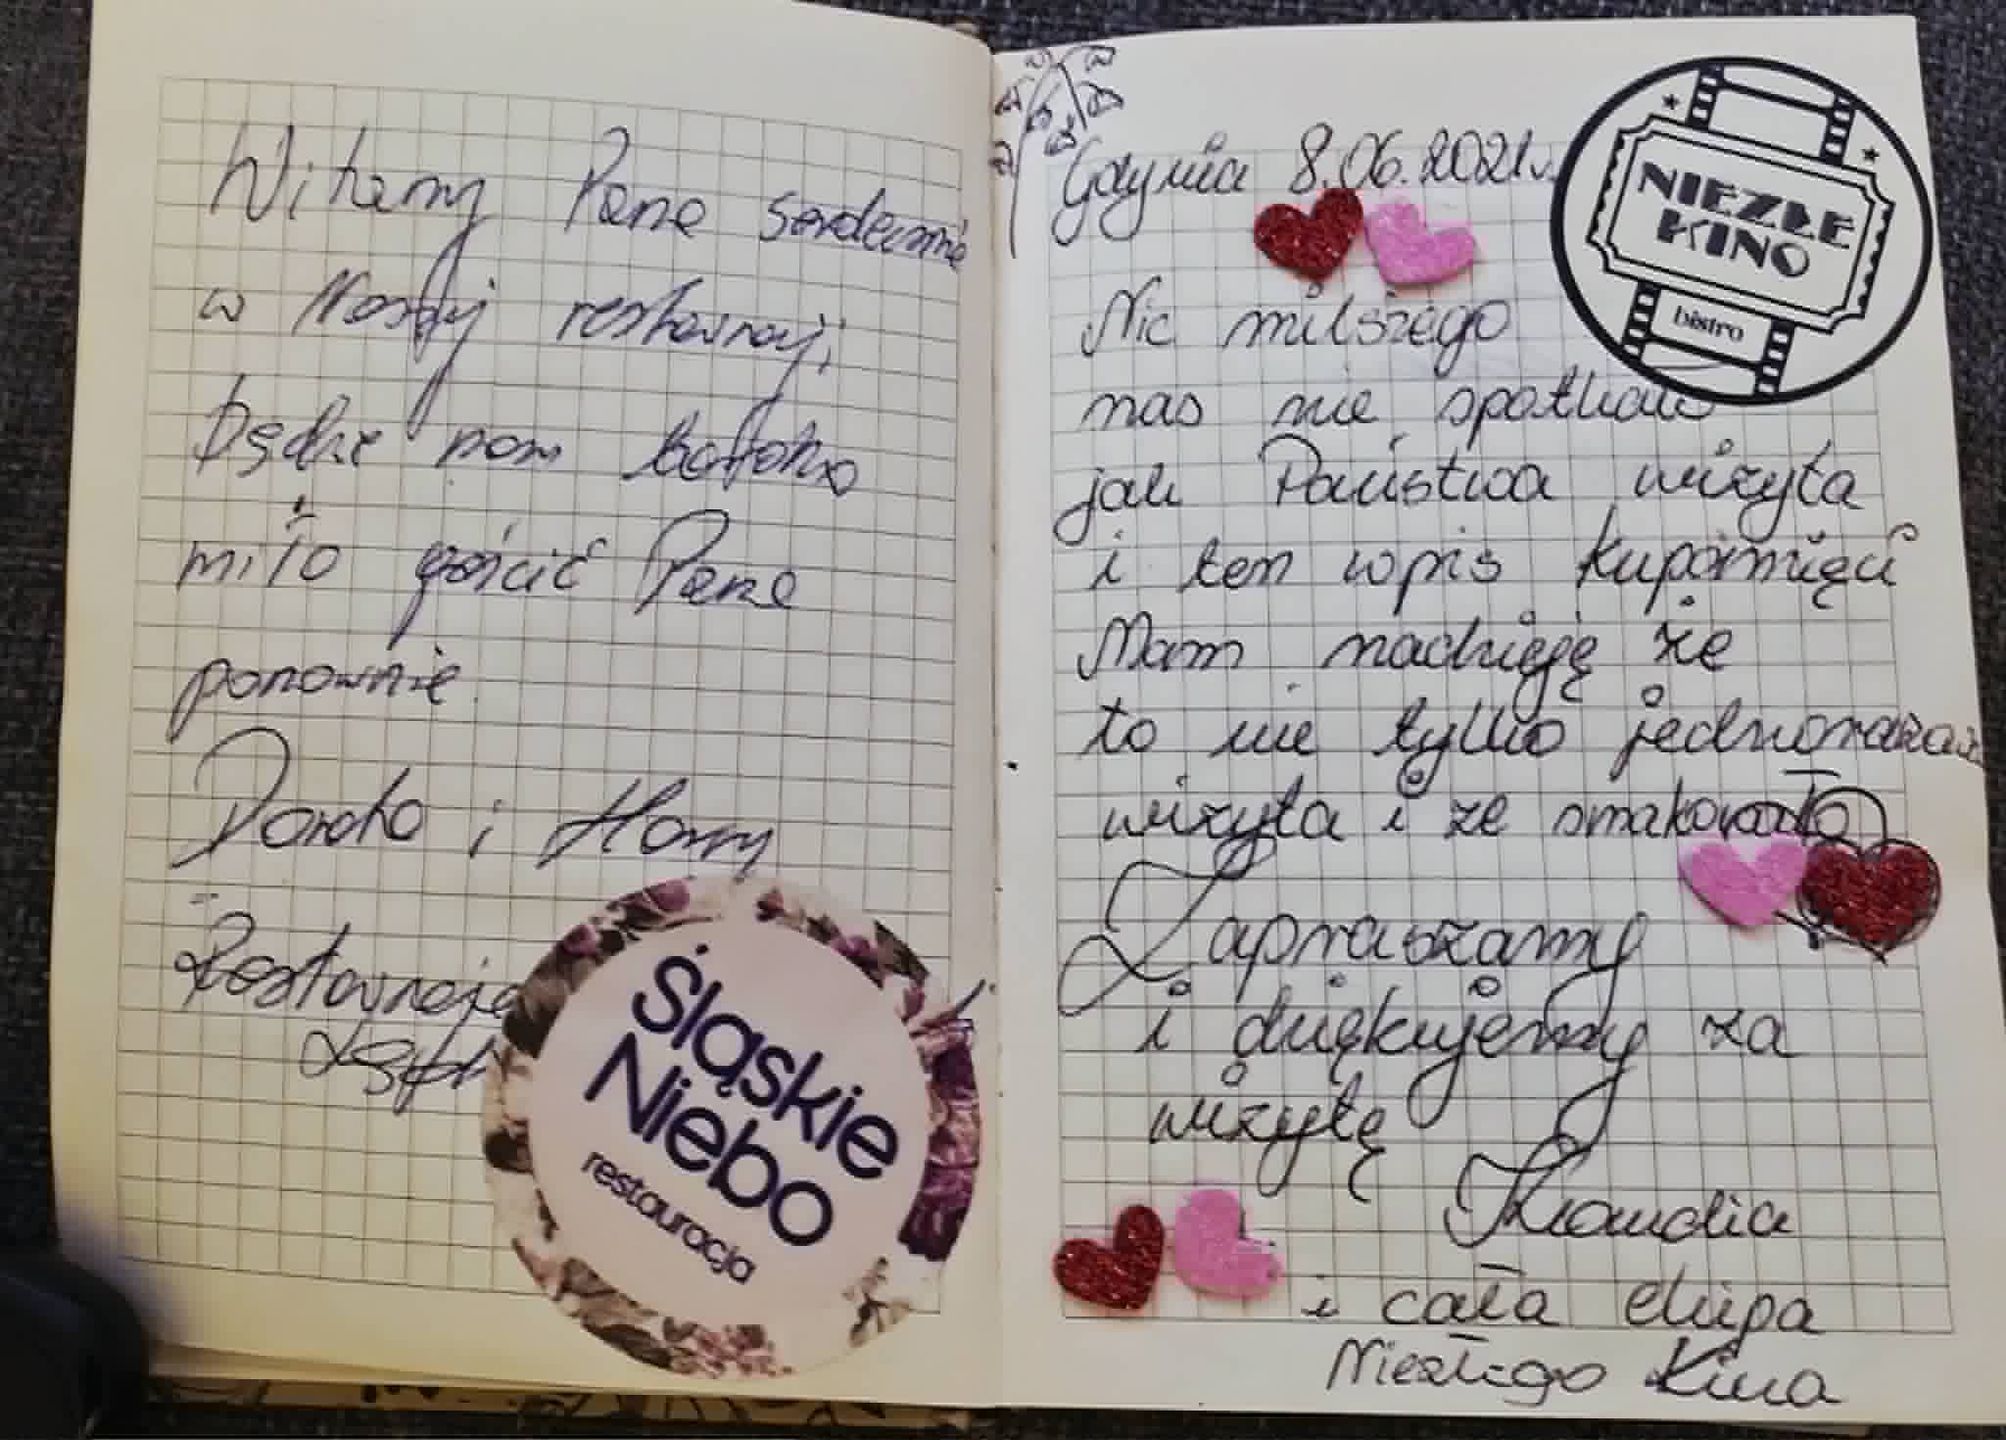 Witamy Panią serdecznie
w Naszej restauracji,
Będzie nam bardzo
miło gościć Panią
ponownie.
Dorota i
Restauracja
Śląskie
Niebo
restauracja
Gdynia 8.06.2021r.
NIEZŁE
KINO
bistro
Nic milszego
nas nie spotkało
jak Państwa wizyta
i ten wpis
Mam nadzieję że
to nie tylko jednorazowa
wizyta i że smakowało
Zapraszamy
i dziękujemy za
wizytę
Klaudia
i cała ekipa
Niezłego Kina